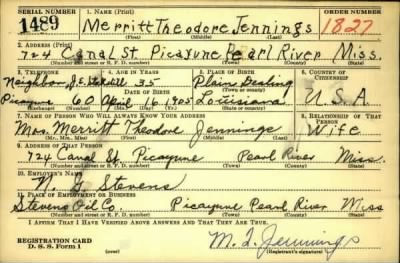 SERIAL NUMBER 1. NAME (Print) ORDER NUMBER
1489 Merritt Theodore Jennings 1827
(First) (Middle) (Last)
2. ADDRESS (Print)
724 Canal St. Picayune Pearl River Miss.
(Number and street or R. F. D. number) (Town) (County) (State)
3. TELEPHONE 4. AGE IN YEARS 5. PLACE OF BIRTH 6. COUNTRY OF CITIZENSHIP
Neighbor J.E. 35 Plain Dealing
DATE OF BIRTH (Town or county)
Picayune 60 April 16 1905 Louisiana U.S.A.
(Exchange) (Number) (Mo.) (Day) (Yr.) (State or country)
7. NAME OF PERSON WHO WILL ALWAYS KNOW YOUR ADDRESS 8. RELATIONSHIP OF THAT PERSON
Mrs. Merritt Theodore Jennings Wife
(Mr., Mrs., Miss) (First) (Middle) (Last)
9. ADDRESS OF THAT PERSON
724 Canal St. Picayune Pearl River Miss.
(Number and street or R. F. D. number) (Town) (County) (State)
10. EMPLOYER'S NAME
N. G. Stevens
11. PLACE OF EMPLOYMENT OR BUSINESS
Stevens Oil Co. Picayune Pearl River Miss
(Number and street or R. F. D. number) (Town) (County) (State)
I AFFIRM THAT I HAVE VERIFIED ABOVE ANSWERS AND THAT THEY ARE TRUE.
REGISTRATION CARD
D. S. S. Form 1 M. T. Jennings
(Registrant's signature)